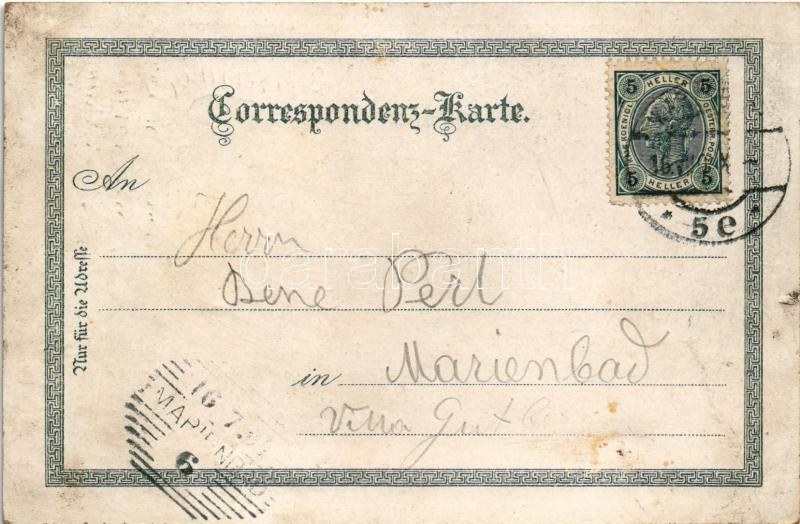 Correspondenz-Karte.
5 HELLER 5
KAIS. KOENIGL. OESTERR. POST
5 HELLER 5
16
X
* 5 e *
An
Herrn
Bene Perl
in Marienbad
Villa
Nur für die Adresse
16 7
6
darabanth